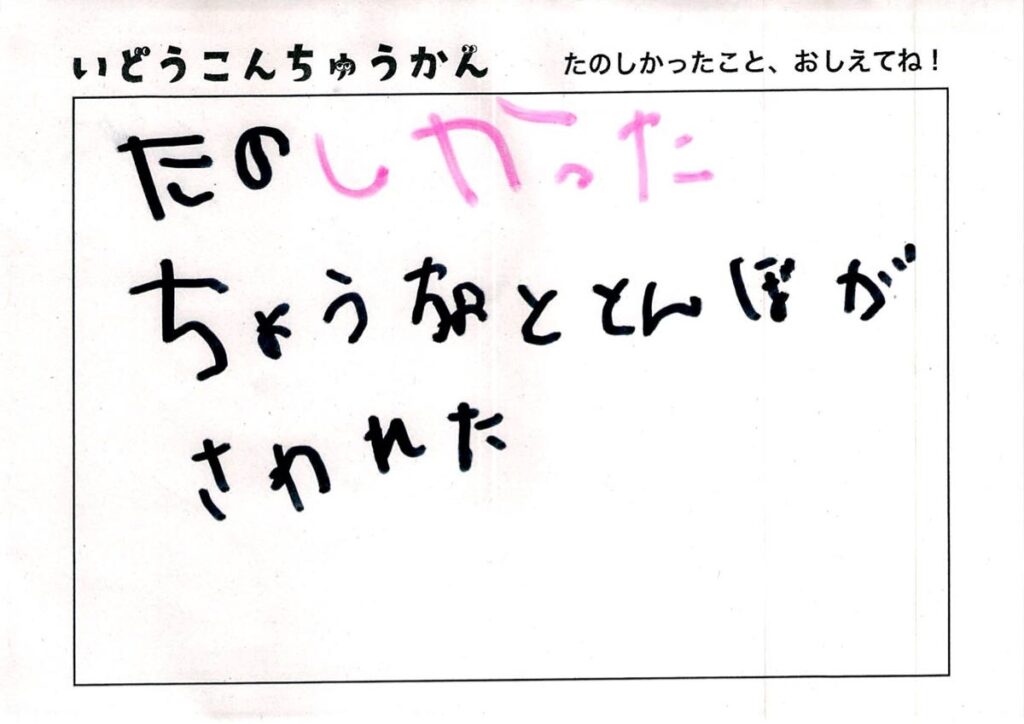 いどうこんちゅうかん
たのしかったこと、おしえてね！
たのしかった
ちょうととんぼが
さわれた